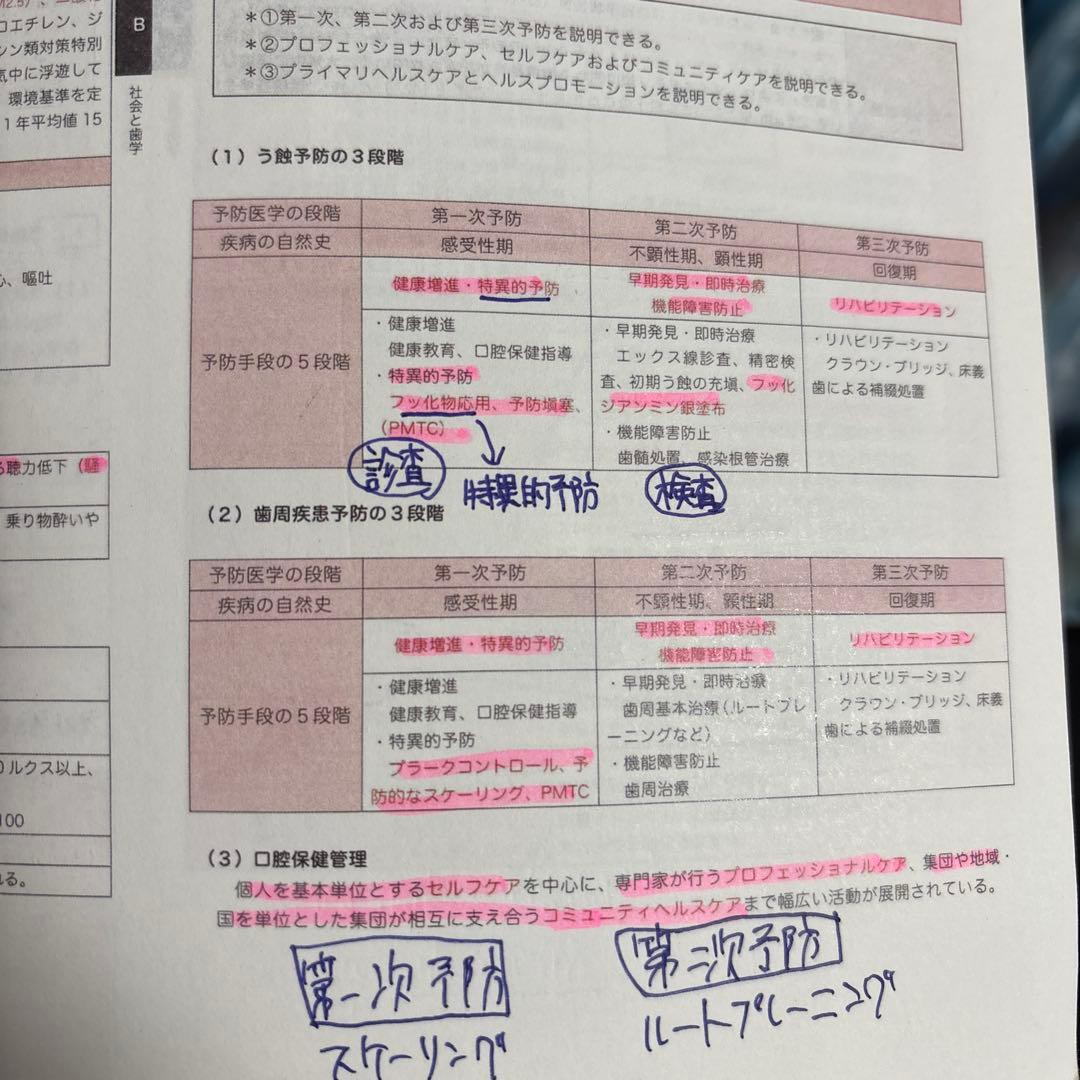 コエチレン、ジ
シン類対策特別
気中に浮遊して
環境基準を定
1年平均値 15
心、嘔吐
る聴力低下（騒
乗り物酔いや
0ルクス以上、
100
れる。
B
社会と歯学
＊①第一次、第二次および第三次予防を説明できる。
＊②プロフェッショナルケア、セルフケアおよびコミュニティケアを説明できる。
＊③プライマリヘルスケアとヘルスプロモーションを説明できる。
（1）う蝕予防の3段階
予防医学の段階 第一次予防 第二次予防 第三次予防
疾病の自然史 感受性期 不顕性期、顕性期 回復期
予防手段の5段階
健康増進・特異的予防
・健康増進
健康教育、口腔保健指導
・特異的予防
フッ化物応用、予防塡塞、
（PMTC）
早期発見・即時治療
機能障害防止
・早期発見・即時治療
エックス線診査、精密検
査、初期う蝕の充塡、フッ化
ジアンミン銀塗布
・機能障害防止
歯髄処置、感染根管治療
リハビリテーション
・リハビリテーション
クラウン・ブリッジ、床義
歯による補綴処置
診査
特異的予防
検査
（2）歯周疾患予防の3段階
予防医学の段階 第一次予防 第二次予防 第三次予防
疾病の自然史 感受性期 不顕性期、顕性期 回復期
予防手段の5段階
健康増進・特異的予防
・健康増進
健康教育、口腔保健指導
・特異的予防
プラークコントロール、予
防的なスケーリング、PMTC
早期発見・即時治療
機能障害防止
・早期発見・即時治療
歯周基本治療（ルートプレ
ーニングなど）
・機能障害防止
歯周治療
リハビリテーション
・リハビリテーション
クラウン・ブリッジ、床義
歯による補綴処置
（3）口腔保健管理
個人を基本単位とするセルフケアを中心に、専門家が行うプロフェッショナルケア、集団や地域・
国を単位とした集団が相互に支え合うコミュニティヘルスケアまで幅広い活動が展開されている。
第一次予防
スケーリング
第二次予防
ルートプレーニング